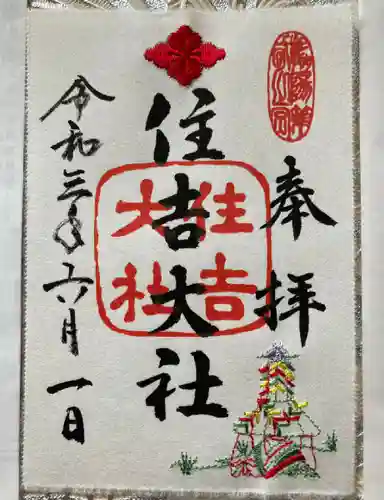 奉拝
住吉大社
住吉大社
令和三年六月一日